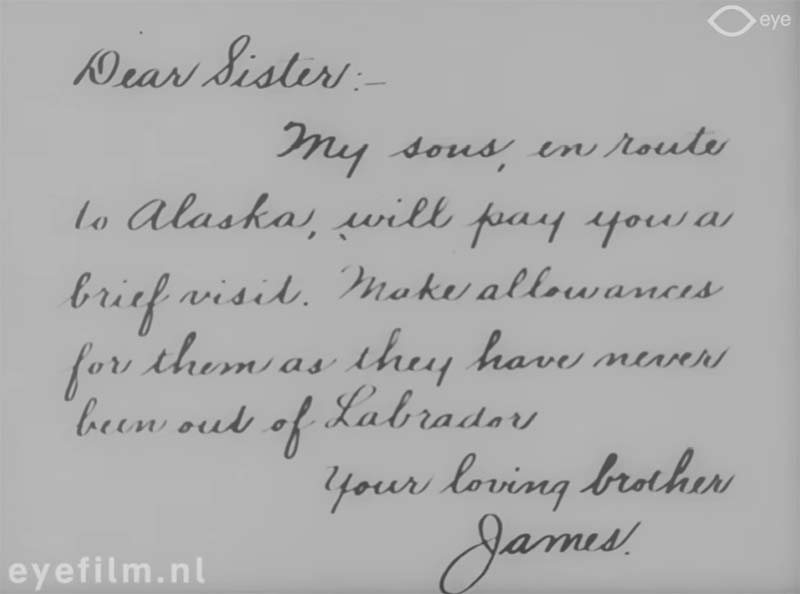 eye
Dear Sister:-
My sons, en route
to Alaska, will pay you a
brief visit. Make allowances
for them as they have never
been out of Labrador
Your loving brother
James.
eyefilm.nl